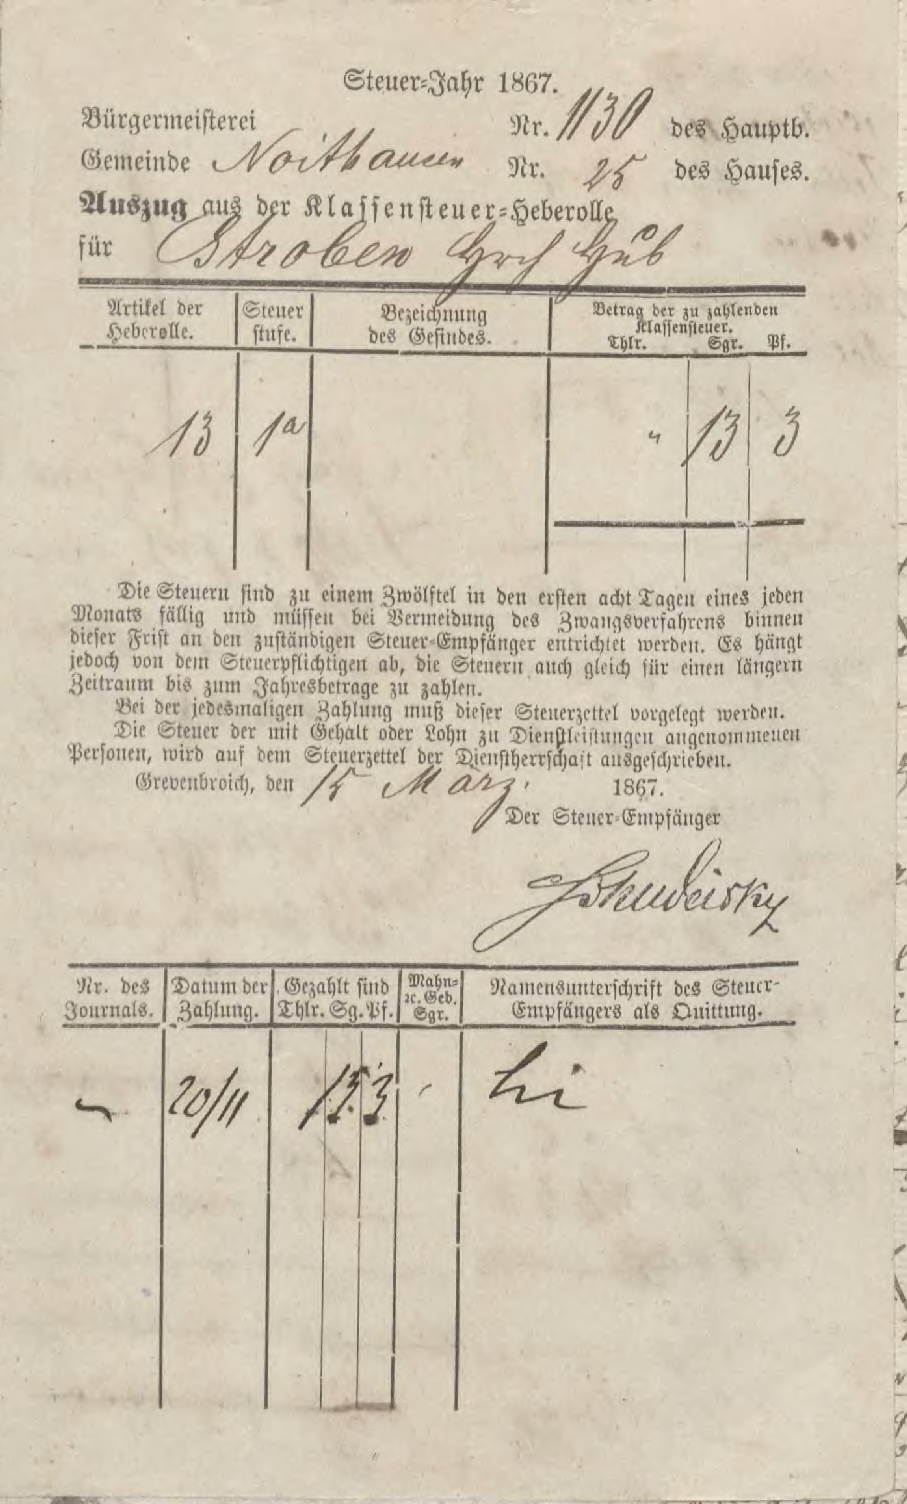 Steuer-Jahr 1867.
Bürgermeisterei Nr. 1130 des Hauptb.
Gemeinde Noithausen Nr. 25 des Hauses.
Auszug aus der Klassensteuer-Heberolle
für Stroben Hrch Hub
Artikel der Heberolle. Steuer stufe. Bezeichnung des Gesindes. Betrag der zu zahlenden Klassensteuer.
Thlr. Sgr. Pf.
13 1a " 13 3
Die Steuern sind zu einem Zwölftel in den ersten acht Tagen eines jeden
Monats fällig und müssen bei Vermeidung des Zwangsverfahrens binnen
dieser Frist an den zuständigen Steuer-Empfänger entrichtet werden. Es hängt
jedoch von dem Steuerpflichtigen ab, die Steuern auch gleich für einen längern
Zeitraum bis zum Jahresbetrage zu zahlen.
Bei der jedesmaligen Zahlung muß dieser Steuerzettel vorgelegt werden.
Die Steuer der mit Gehalt oder Lohn zu Dienstleistungen angenommenen
Personen, wird auf dem Steuerzettel der Dienstherrschaft ausgeschrieben.
Grevenbroich, den 15 März 1867.
Der Steuer-Empfänger
Nr. des Journals. Datum der Zahlung. Gezahlt sind Thlr. Sg. Pf. Mahn- ꝛc. Geb. Sgr. Namensunterschrift des Steuer-Empfängers als Quittung.
20/11 13 3